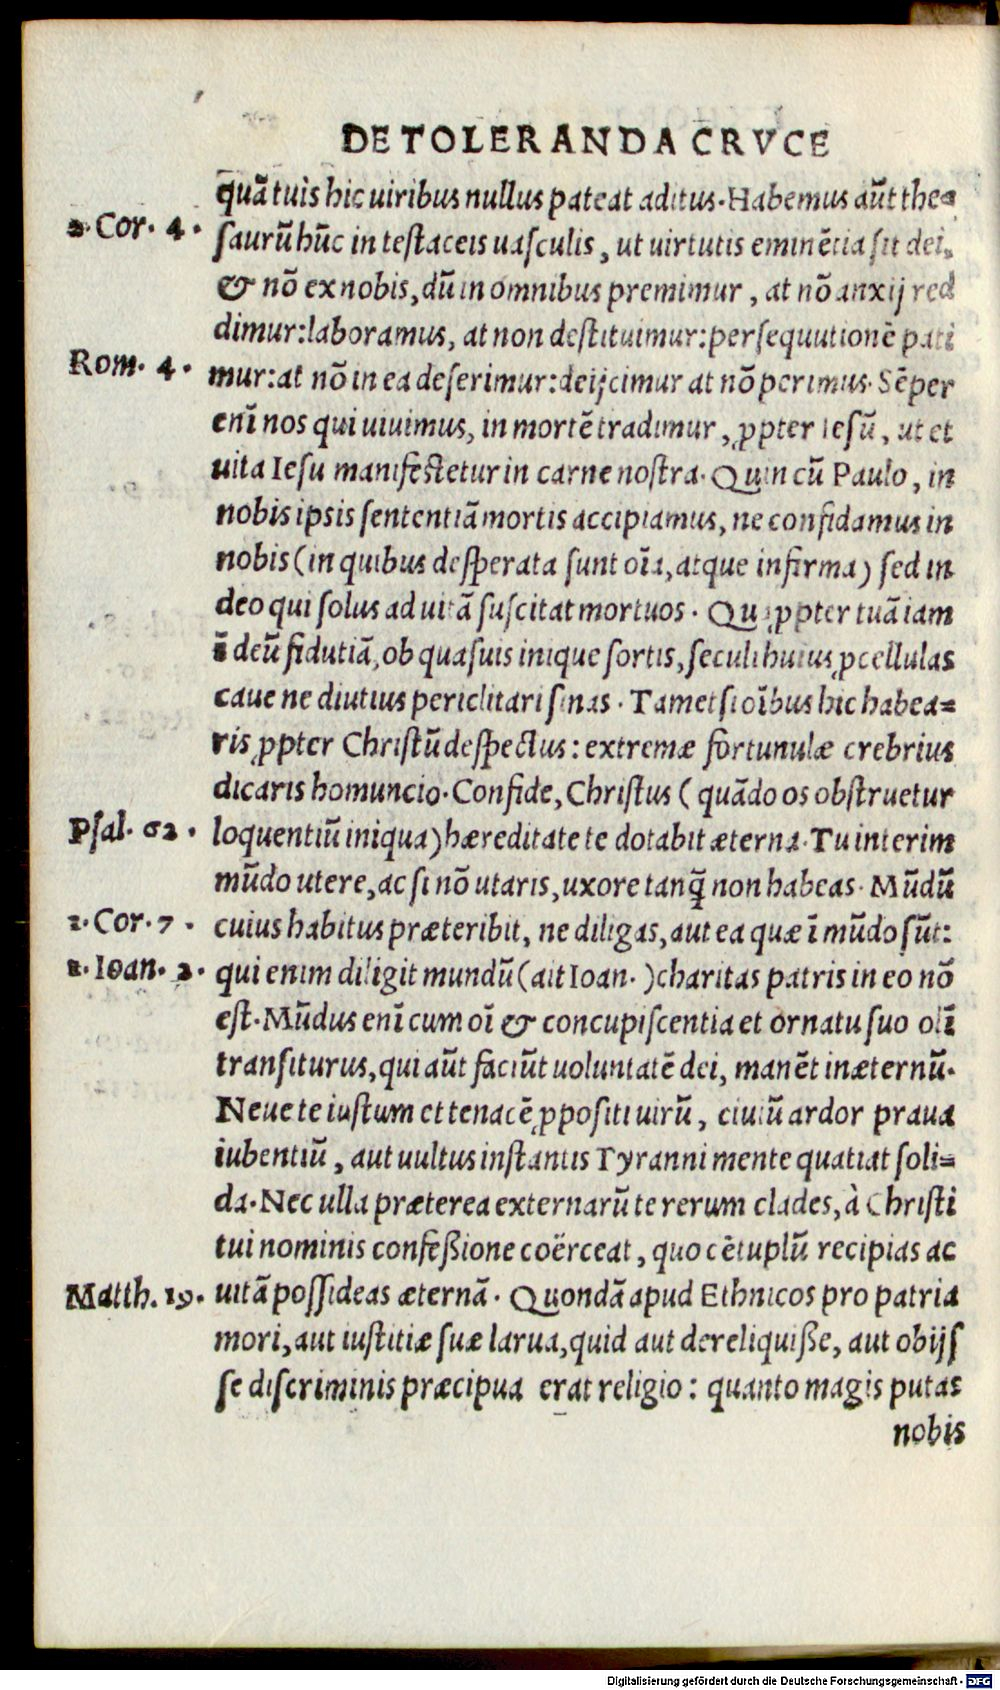 DE TOLERANDA CRVCE
quā tuis hic uiribus nullus pateat aditus. Habemus aūt the=
2. Cor. 4. saurū hūc in testaceis uasculis, ut uirtutis eminētia sit dei,
& nō ex nobis, dū in omnibus premimur, at nō anxij red
dimur: laboramus, at non destituimur: persequutionē pati
Rom. 4. mur: at nō in ea deserimur: deijcimur at nō perimus. Sēper
enī nos qui uiuimus, in mortē tradimur, ꝓpter Iesū, ut et
uita Iesu manifestetur in carne nostra. Quin cū Paulo, in
nobis ipsis sententiā mortis accipiamus, ne confidamus in
nobis (in quibus desperata sunt oīa, atque infirma) sed in
deo qui solus ad uitā suscitat mortuos. Quꝓpter tuā iam
ī deū fidutiā, ob quasuis inique sortis, seculi huius ꝓcellulas
caue ne diutius periclitari sinas. Tametsi oībus hic habea=
ris ꝓpter Christū despectus: extremæ fortunulæ crebrius
dicaris homuncio. Confide, Christus (quādo os obstruetur
Psal. 62. loquentiū iniqua) hæreditate te dotabit æterna. Tu interim
mūdo utere, ac si nō utaris, uxore tanq̄ non habeas. Mūdū
1. Cor. 7. cuius habitus præteribit, ne diligas, aut ea quæ ī mūdo sūt:
1. Ioan. 2. qui enim diligit mundū (ait Ioan.) charitas patris in eo nō
est. Mūdus enī cum oī & concupiscentia et ornatu suo olī
transiturus, qui aūt faciūt uoluntatē dei, manēt inæternū.
Neue te iustum et tenacē ꝓpositi uirū, ciuiū ardor praua
iubentiū, aut uultus instantis Tyranni mente quatiat soli=
da. Nec ulla præterea externarū te rerum clades, à Christi
tui nominis confeßione coërceat, quo cētuplū recipias ac
Matth. 19. uitā possideas æternā. Quondā apud Ethnicos pro patria
mori, aut iustitiæ suæ larua, quid aut dereliquiße, aut obijs
se discriminis præcipua erat religio: quanto magis putas
nobis
Digitalisierung gefördert durch die Deutsche Forschungsgemeinschaft - DFG